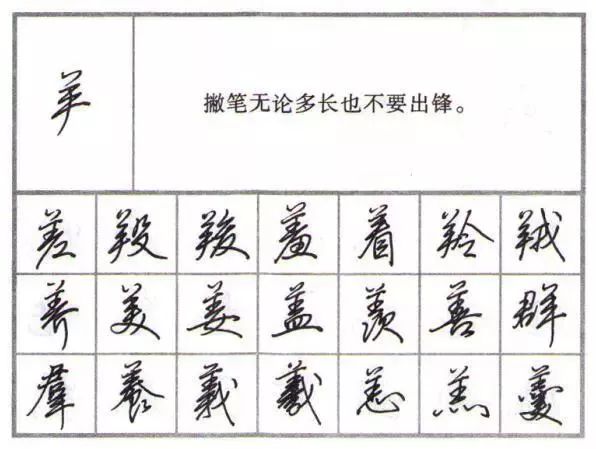 羊 撇笔无论多长也不要出锋。
差 羖 羧 羞 着 羚 羢
养 美 姜 盖 羡 善 群
羣 養 義 羲 恙 羔 羹